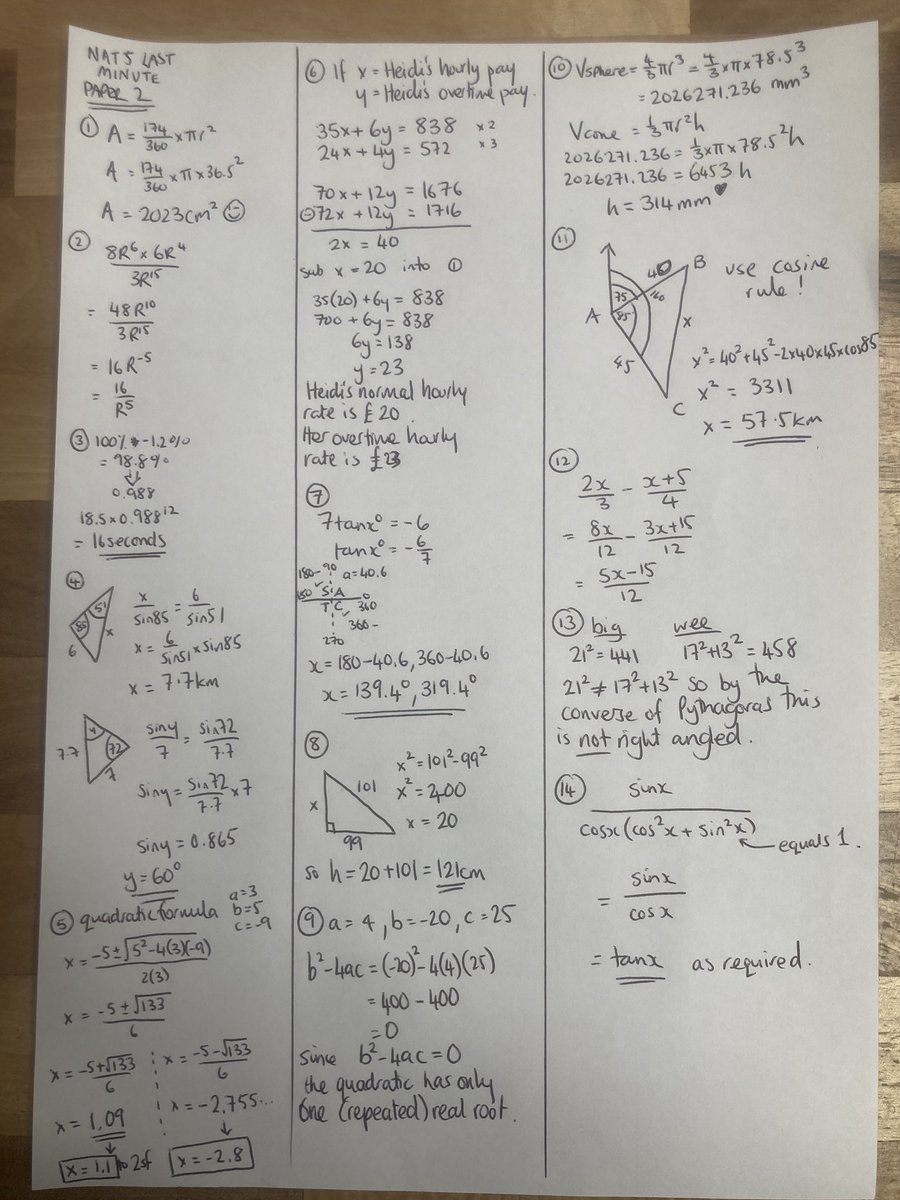 NAT5 LAST
MINUTE
PAPER 2
① A = 174/360 × πr²
A = 174/360 × π × 36.5²
A = 2023cm² ☺
② 8R⁶ × 6R⁴ / 3R¹⁵
= 48R¹⁰ / 3R¹⁵
= 16R⁻⁵
= 16/R⁵
③ 100% - 1.2%
= 98.8%
⇓
0.988
18.5 × 0.988¹²
= 16 seconds
④ 51 85 6 x
x/sin85 = 6/sin51
x = 6/sin51 × sin85
x = 7.7km
7.7 y 72 7
siny/7 = sin72/7.7
siny = sin72/7.7 × 7
siny = 0.865
y = 60°
⑤ quadratic formula a=3 b=5 c=-9
x = -5±√5²-4(3)(-9) / 2(3)
x = -5±√133 / 6
x = -5+√133 / 6 x = -5-√133 / 6
x = 1.09 x = -2.755...
x = 1.1 to 2sf x = -2.8
⑥ If x = Heidi's hourly pay
y = Heidi's overtime pay.
35x + 6y = 838 ×2
24x + 4y = 572 ×3
70x + 12y = 1676
⊖72x + 12y = 1716
2x = 40
sub x = 20 into ①
35(20) + 6y = 838
700 + 6y = 838
6y = 138
y = 23
Heidi's normal hourly
rate is £20.
Her overtime hourly
rate is £23
⑦
7tanx° = -6
tanx° = -6/7
180- 90 a = 40.6
180 ✓S A 0
T C✓ 360
360-
270
x = 180-40.6, 360-40.6
x = 139.4°, 319.4°
⑧
x 101 99
x² = 101²-99²
x² = 400
x = 20
so h = 20+101 = 121cm
⑨ a = 4, b = -20, c = 25
b²-4ac = (-20)²-4(4)(25)
= 400 - 400
= 0
since b²-4ac = 0
the quadratic has only
one (repeated) real root.
⑩ Vsphere = 4/3πr³ = 4/3 × π × 78.5³
= 2026271.236 mm³
Vcone = 1/3πr²h
2026271.236 = 1/3 × π × 78.5²h
2026271.236 = 6453 h
h = 314mm ♥
⑪
A 75 85 160 40 B x 45 C
use cosine
rule!
x² = 40²+45²-2×40×45×cos85
x² = 3311
x = 57.5km
⑫
2x/3 - x+5/4
= 8x/12 - 3x+15/12
= 5x-15/12
⑬ big wee
21² = 441 17²+13² = 458
21² ≠ 17²+13² so by the
converse of Pythagoras this
is not right angled.
⑭ sinx / cosx(cos²x + sin²x)
equals 1.
= sinx / cosx
= tanx as required.